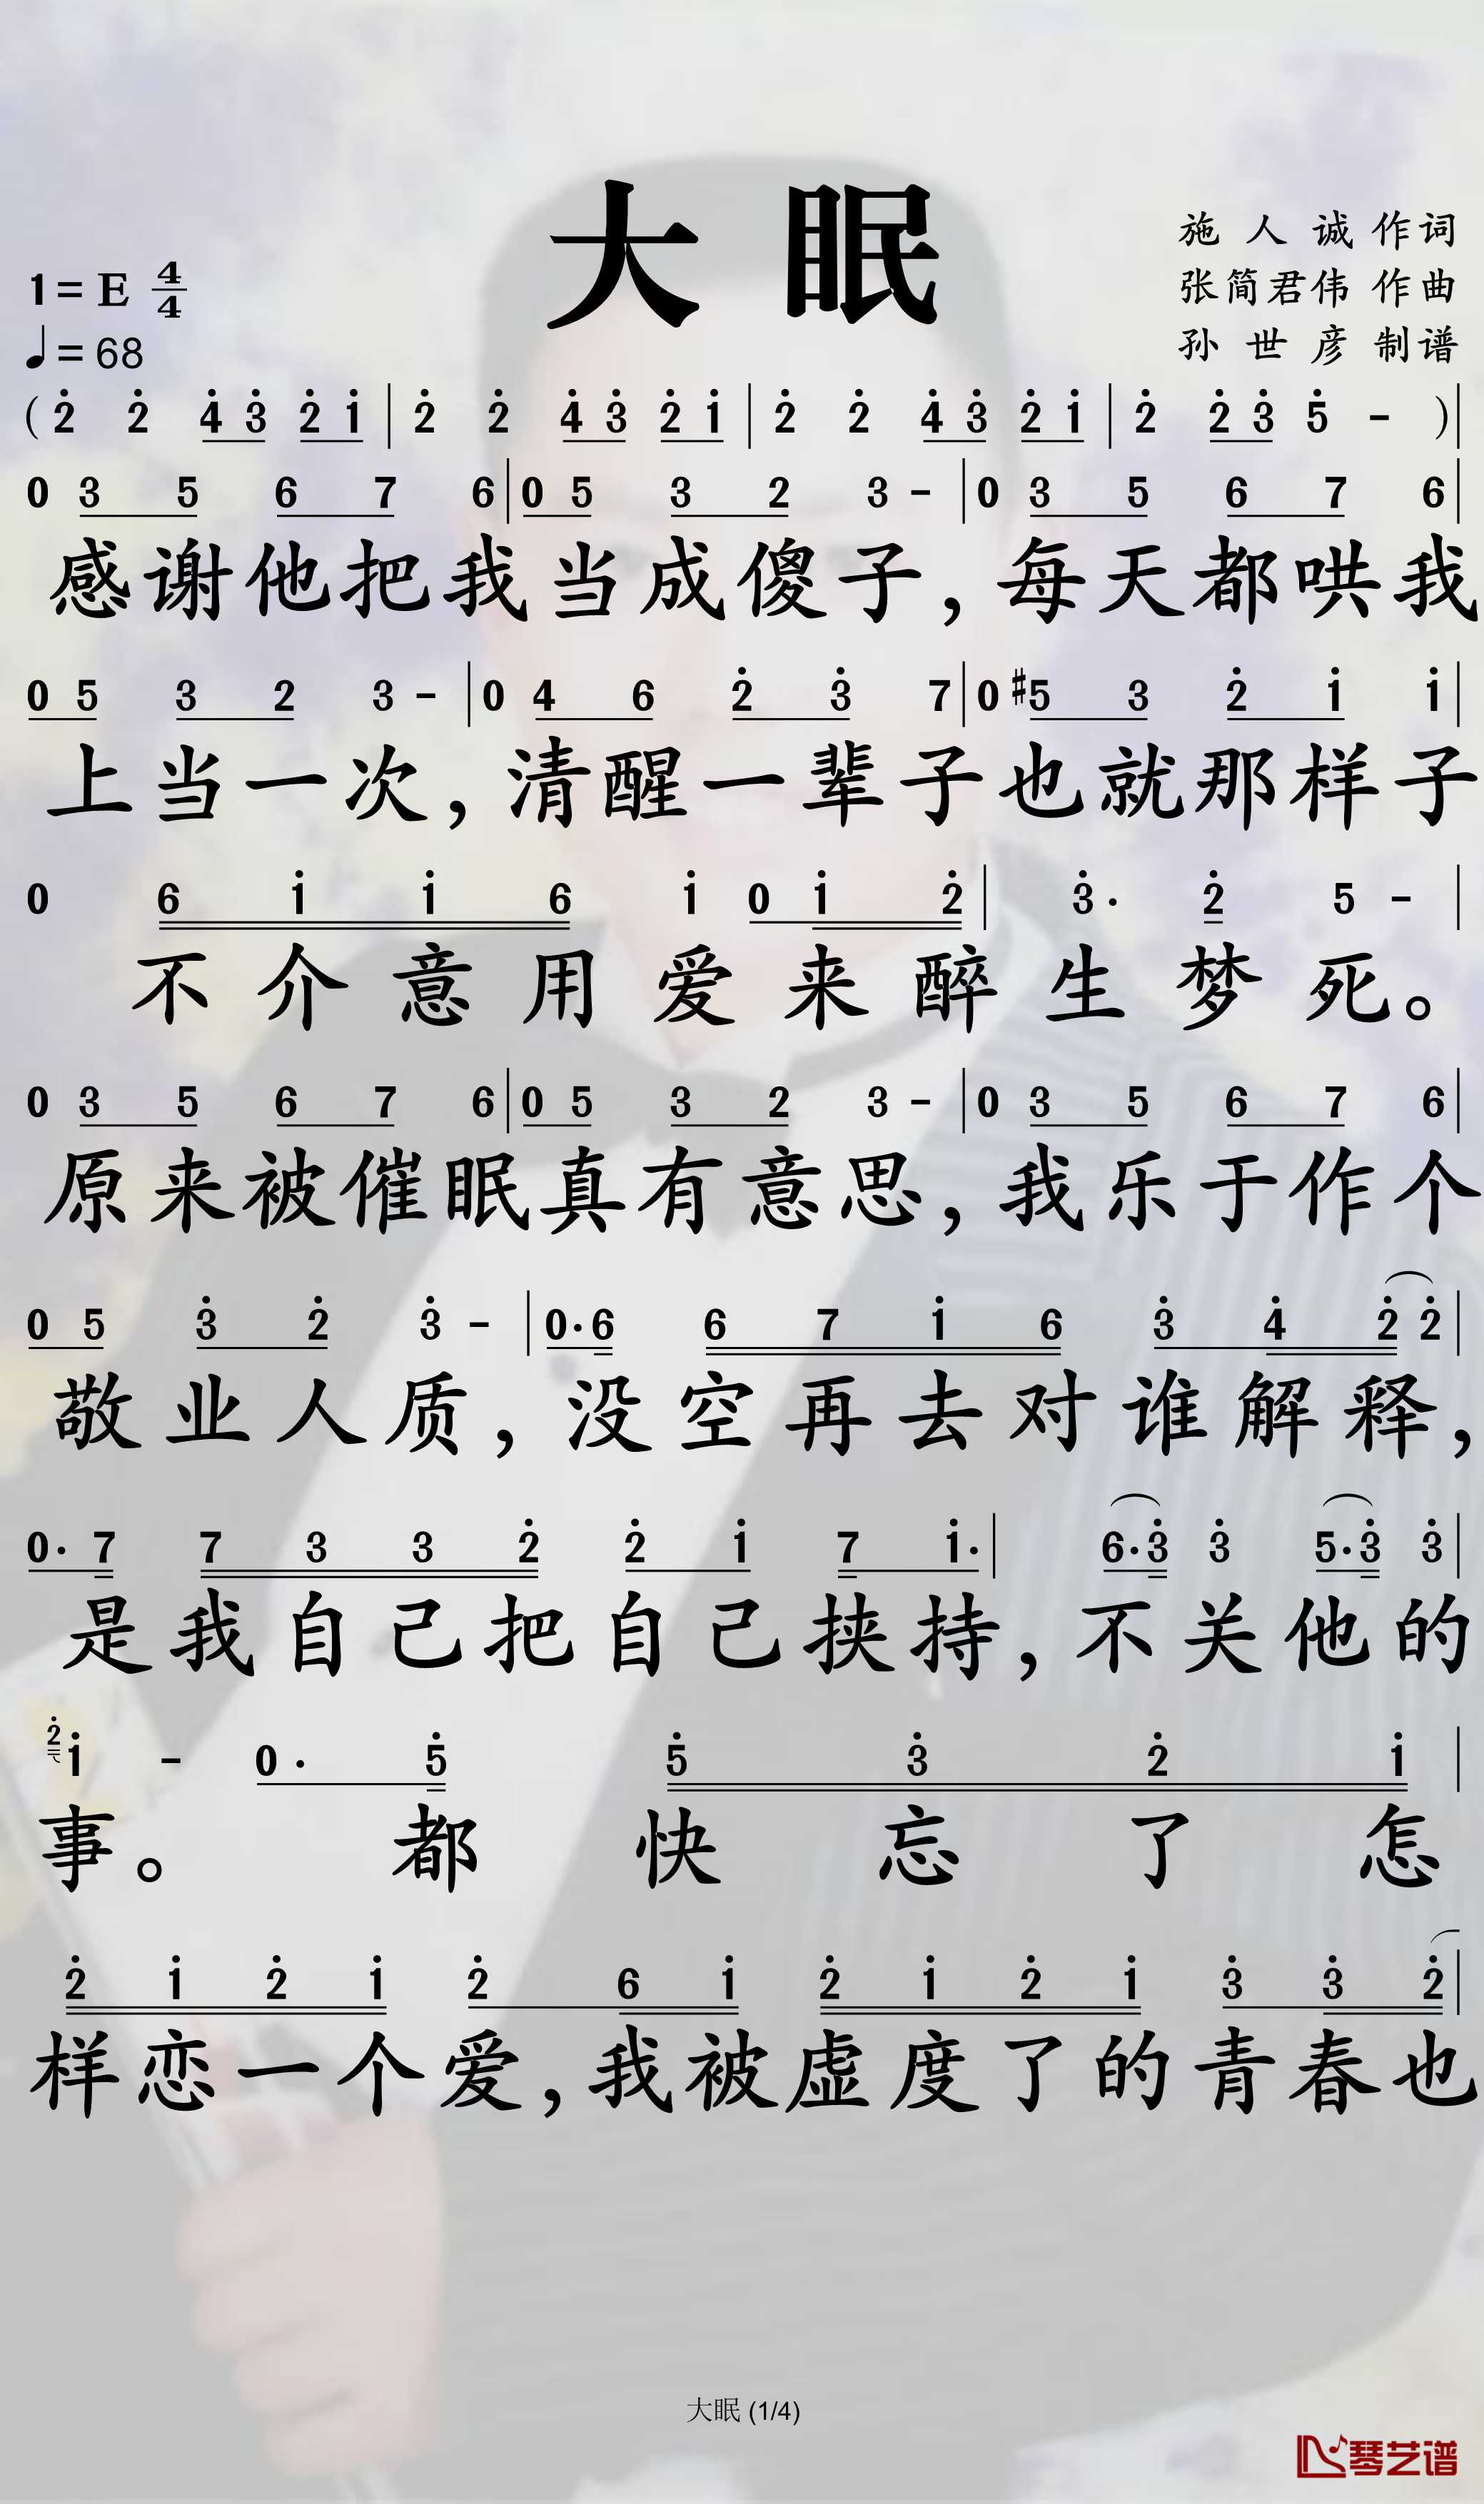 大眠
施人诚 作词
1=E 4/4
张简君伟 作曲
♩=68
孙世彦 制谱
(2̇ 2̇ 4̇ 3̇ 2̇ 1̇ | 2̇ 2̇ 4̇ 3̇ 2̇ 1̇ | 2̇ 2̇ 4̇ 3̇ 2̇ 1̇ | 2̇ 2̇ 3̇ 5̇ - )|
0 3 5 6 7 6 | 0 5 3 2 3 - | 0 3 5 6 7 6 |
感谢他把我当成傻子，每天都哄我
0 5 3 2 3 - | 0 4 6 2̇ 3̇ 7 | 0 #5 3 2̇ 1̇ 1̇ |
上当一次，清醒一辈子也就那样子
0 6 1̇ 1̇ 6 1̇ 0 1̇ 2̇ | 3̇· 2̇ 5 - |
不介意用爱来醉生梦死。
0 3 5 6 7 6 | 0 5 3 2 3 - | 0 3 5 6 7 6 |
原来被催眠真有意思，我乐于作个
0 5 3̇ 2̇ 3̇ - | 0· 6 6 7 1̇ 6 3̇ 4̇ 2̇ 2̇ |
敬业人质，没空再去对谁解释，
0· 7 7 3 3 2̇ 2̇ 1̇ 7 1̇· | 6· 3̇ 3̇ 5· 3̇ 3̇ |
是我自己把自己挟持，不关他的
2̇ 1̇ - 0· 5̇ 5̇ 3̇ 2̇ 1̇ |
事。都快忘了怎
2̇ 1̇ 2̇ 1̇ 2̇ 6 1̇ 2̇ 1̇ 2̇ 1̇ 3̇ 3̇ 2̇ |
样恋一个爱，我被虚度了的青春也
大眠 (1/4)
琴艺谱